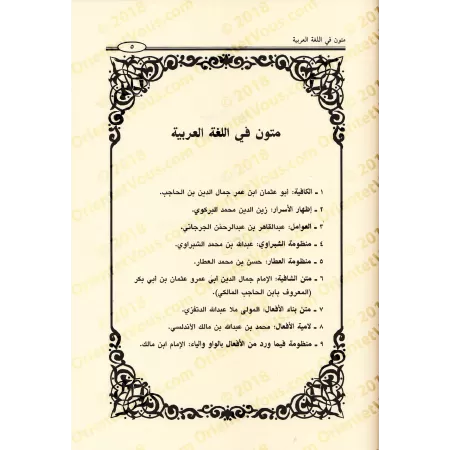 متون في اللغة العربية
٥
متون في اللغة العربية
١ ـ الكافية: أبو عثمان ابن عمر جمال الدين بن الحاجب.
٢ ـ إظهار الأسرار: زين الدين محمد البركوي.
٣ ـ العوامل: عبدالقاهر بن عبدالرحمن الجرجاني.
٤ ـ منظومة الشبراوي: عبدالله بن محمد الشبراوي.
٥ ـ منظومة العطار: حسن بن محمد العطار.
٦ ـ متن الشافية: الإمام جمال الدين أبي عمرو عثمان بن أبي بكر
(المعروف بابن الحاجب المالكي).
٧ ـ متن بناء الأفعال: المولى ملا عبدالله الدنقزي.
٨ ـ لامية الأفعال: محمد بن عبدالله بن مالك الأندلسي.
٩ ـ منظومة فيما ورد من الأفعال بالواو والياء: الإمام ابن مالك.
OrientetVous.com © 2018